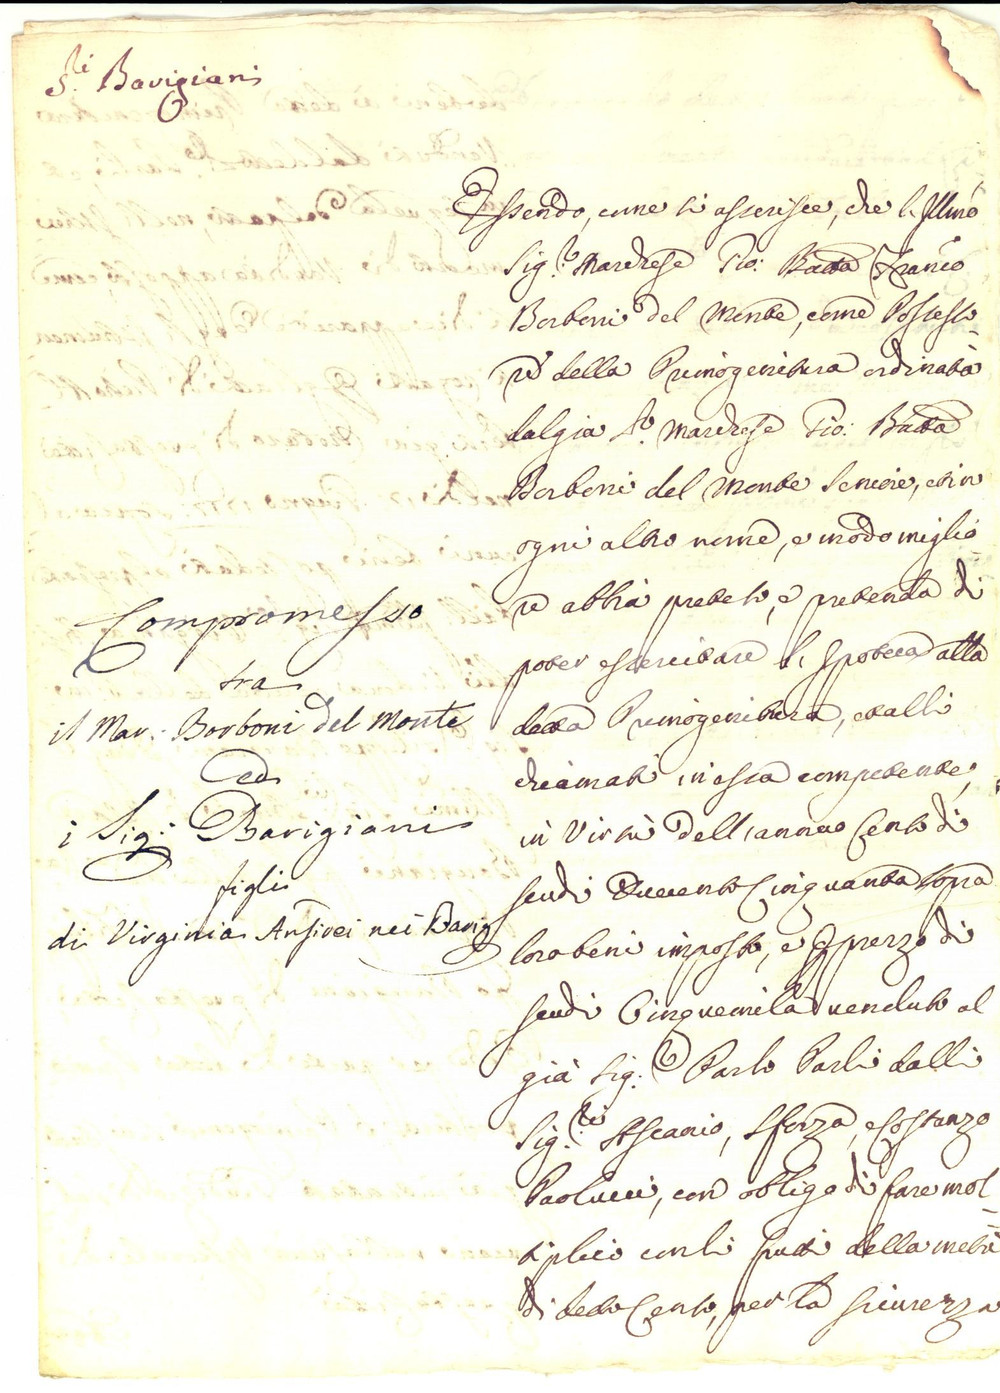 S.ri Barigiani
Essendo, come si asserisce, che l'Illmo
Sig.r Marchese Gio: Batta Franco
Borboni del Monte, come Possesso-
re della Primogenitura ordinata
dal già Sr. Marchese Gio: Batta
Borboni del Monte Seniore, et in
ogni altro nome, e modo miglio-
re abbia preteso, e pretenda di
poter esercitare l'Ipoteca alla
detta Primogenitura, et alli
chiamati in essa competente,
in Virtù dell'annuo Censo di
scudi Duecento Cinquanta sopra
loro beni imposto, e p prezzo di
scudi Cinquemila venduto al
già Sig.r Carlo Carli dalli
Sig.ri Ascanio, Sforza, e Costanzo
Paolucci, con obligo di fare mol-
tiplico con li frutti della metà
di detto Censo, per la sicurezza
Compromesso
tra
il Mar: Borboni del Monte
ed
i Sig.i Barigiani
figli
di Virginia Ansidei nei Barig